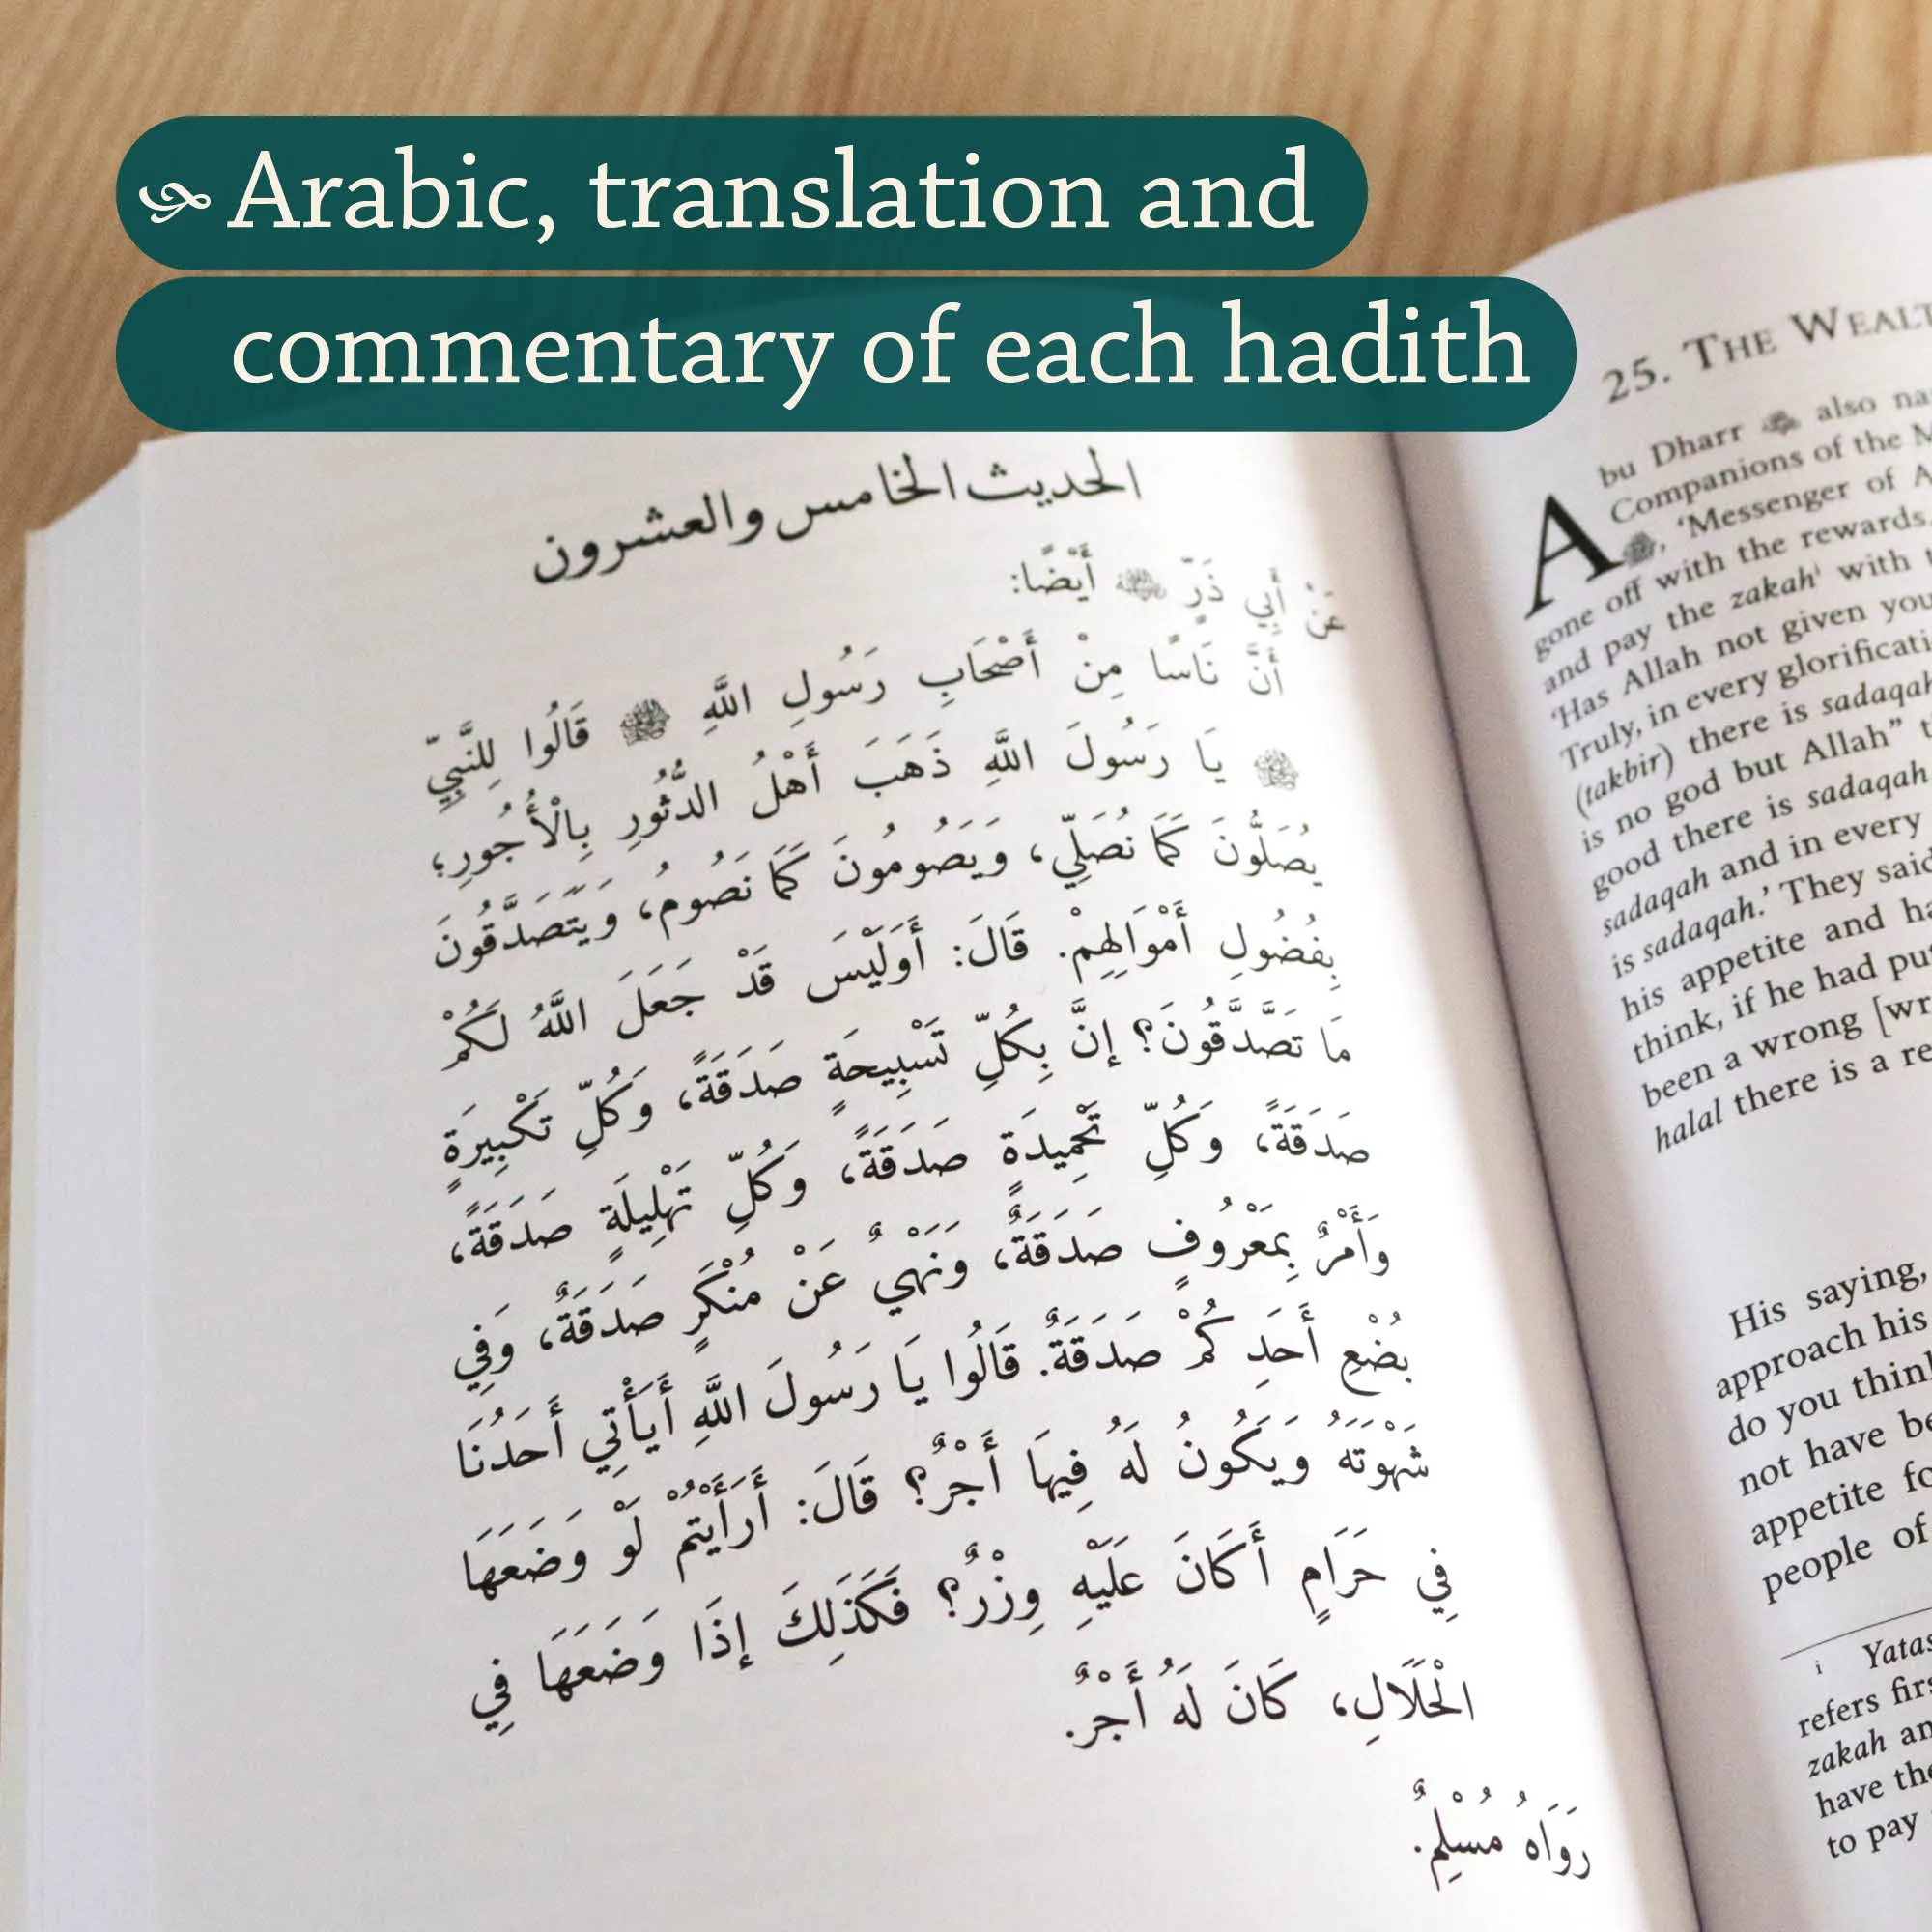 Arabic, translation and
commentary of each hadith
الحديث الخامس والعشرون
عَنْ أَبِي ذَرٍّ ﵁ أَيْضًا:
أَنَّ نَاسًا مِنْ أَصْحَابِ رَسُولِ اللَّهِ ﷺ قَالُوا لِلنَّبِيِّ
ﷺ يَا رَسُولَ اللَّهِ ذَهَبَ أَهْلُ الدُّثُورِ بِالْأُجُورِ؛
يُصَلُّونَ كَمَا نُصَلِّي، وَيَصُومُونَ كَمَا نَصُومُ، وَيَتَصَدَّقُونَ
بِفُضُولِ أَمْوَالِهِمْ. قَالَ: أَوَلَيْسَ قَدْ جَعَلَ اللَّهُ لَكُمْ
مَا تَصَّدَّقُونَ؟ إِنَّ بِكُلِّ تَسْبِيحَةٍ صَدَقَةً، وَكُلِّ تَكْبِيرَةٍ
صَدَقَةً، وَكُلِّ تَحْمِيدَةٍ صَدَقَةً، وَكُلِّ تَهْلِيلَةٍ صَدَقَةً،
وَأَمْرٌ بِمَعْرُوفٍ صَدَقَةٌ، وَنَهْيٌ عَنْ مُنْكَرٍ صَدَقَةٌ، وَفِي
بُضْعِ أَحَدِكُمْ صَدَقَةٌ. قَالُوا يَا رَسُولَ اللَّهِ أَيَأْتِي أَحَدُنَا
شَهْوَتَهُ وَيَكُونُ لَهُ فِيهَا أَجْرٌ؟ قَالَ: أَرَأَيْتُمْ لَوْ وَضَعَهَا
فِي حَرَامٍ أَكَانَ عَلَيْهِ وِزْرٌ؟ فَكَذَلِكَ إِذَا وَضَعَهَا فِي
الْحَلَالِ، كَانَ لَهُ أَجْرٌ.
رَوَاهُ مُسْلِمٌ.
25. THE
Abu Dharr ﵁ also
Companions of the
ﷺ, 'Messenger of
gone off with the rewards.
and pay the zakah¹ with
'Has Allah not given you
Truly, in every
(takbir) there is sadaqah
is no god but Allah"
good there is sadaqah
sadaqah and in every
is sadaqah.' They said
his appetite and
think, if he had put
been a wrong
halal there is a
His saying,
approach his
do you think
not have
appetite
people of
i
refers
zakah
have
to pay